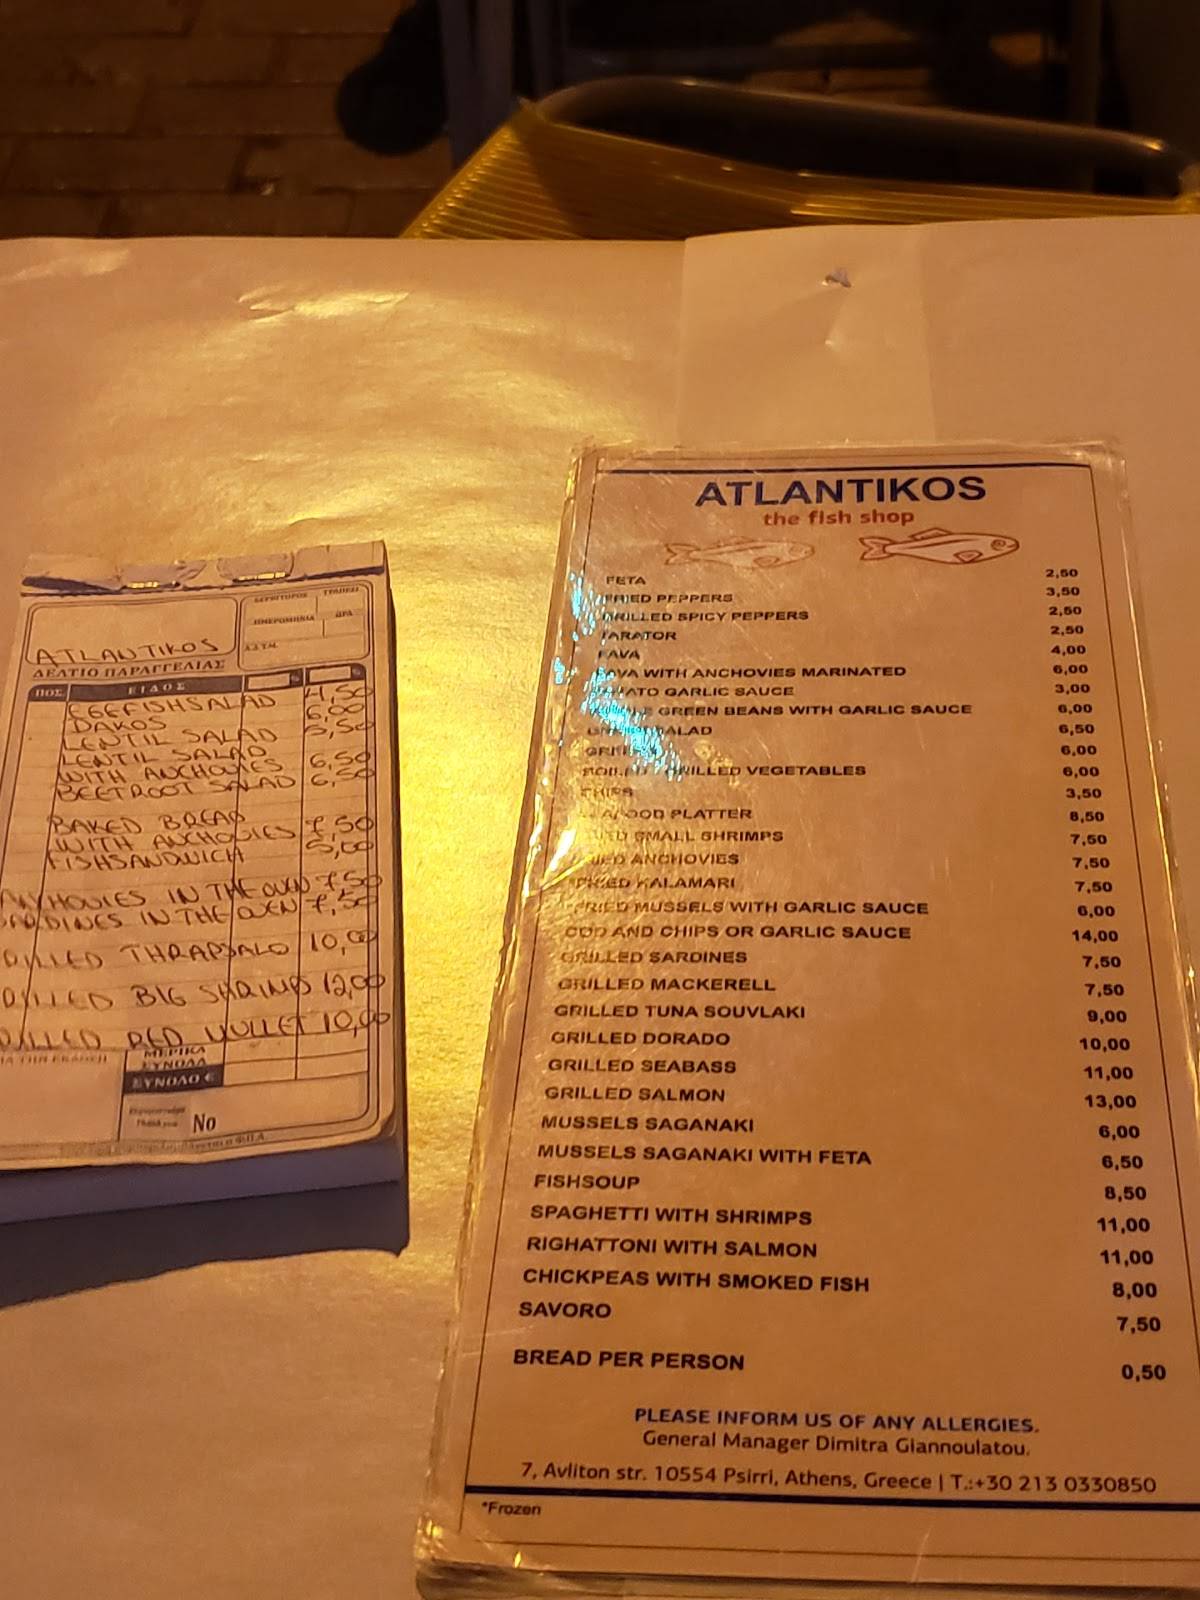 ATLANTIKOS
ΔΕΛΤΙΟ ΠΑΡΑΓΓΕΛΙΑΣ
ΠΟΣ. ΕΙΔΟΣ
EGGFISHSALAD 4,50
DAKOS 6,00
LENTIL SALAD 5,50
LENTIL SALAD
WITH ANCHOVIES 6,50
BEETROOT SALAD 6,50
BAKED BREAD
WITH ANCHOVIES 7,50
FISHSANDWICH 5,00
ANCHOVIES IN THE OVEN 7,50
SARDINES IN THE OVEN 7,50
RILLED THRAPSALO 10,00
RILLED BIG SHRIMPS 12,00
RILLED RED MULLET 10,00
ΜΕΡΙΚΑ
ΣΥΝΟΛΑ
ΣΥΝΟΛΟ €
No
ATLANTIKOS
the fish shop
FETA 2,50
FRIED PEPPERS 3,50
GRILLED SPICY PEPPERS 2,50
TARATOR 2,50
FAVA 4,00
FAVA WITH ANCHOVIES MARINATED 6,00
POTATO GARLIC SAUCE 3,00
GREEN BEANS WITH GARLIC SAUCE 6,00
SALAD 6,50
6,00
BOILED GRILLED VEGETABLES 6,00
CHIPS 3,50
SEAFOOD PLATTER 8,50
FRIED SMALL SHRIMPS 7,50
FRIED ANCHOVIES 7,50
FRIED KALAMARI 7,50
FRIED MUSSELS WITH GARLIC SAUCE 6,00
COD AND CHIPS OR GARLIC SAUCE 14,00
GRILLED SARDINES 7,50
GRILLED MACKERELL 7,50
GRILLED TUNA SOUVLAKI 9,00
GRILLED DORADO 10,00
GRILLED SEABASS 11,00
GRILLED SALMON 13,00
MUSSELS SAGANAKI 6,00
MUSSELS SAGANAKI WITH FETA 6,50
FISHSOUP 8,50
SPAGHETTI WITH SHRIMPS 11,00
RIGHATTONI WITH SALMON 11,00
CHICKPEAS WITH SMOKED FISH 8,00
SAVORO 7,50
BREAD PER PERSON 0,50
PLEASE INFORM US OF ANY ALLERGIES.
General Manager Dimitra Giannoulatou.
7, Avliton str. 10554 Psirri, Athens, Greece | T.:+30 213 0330850
*Frozen